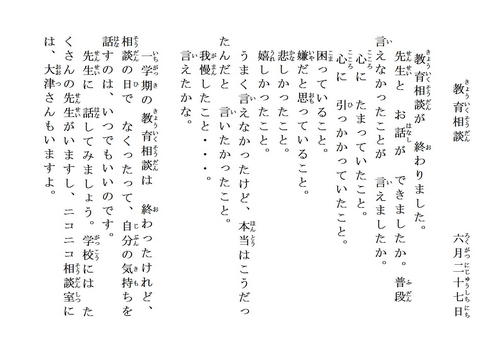 教育相談
六月二十七日
教育相談が 終わりました。
先生と お話が できましたか。 普段
言えなかったことが 言えましたか。
心に たまっていたこと。
心に 引っかかっていたこと。
困っていること。
嫌だと思っていること。
悲しかったこと。
嬉しかったこと。
うまく言えなかったけど、本当はこうだっ
たんだと 言いたかったこと。
我慢したこと・・・。
言えたかな。
一学期の教育相談は 終わったけれど、
相談の日で なくったって、自分の気持ちを
話すのは、いつでもいいのです。
先生に 話してみましょう。学校には た
くさんの先生がいますし、ニコニコ相談室に
は、大津さんもいますよ。